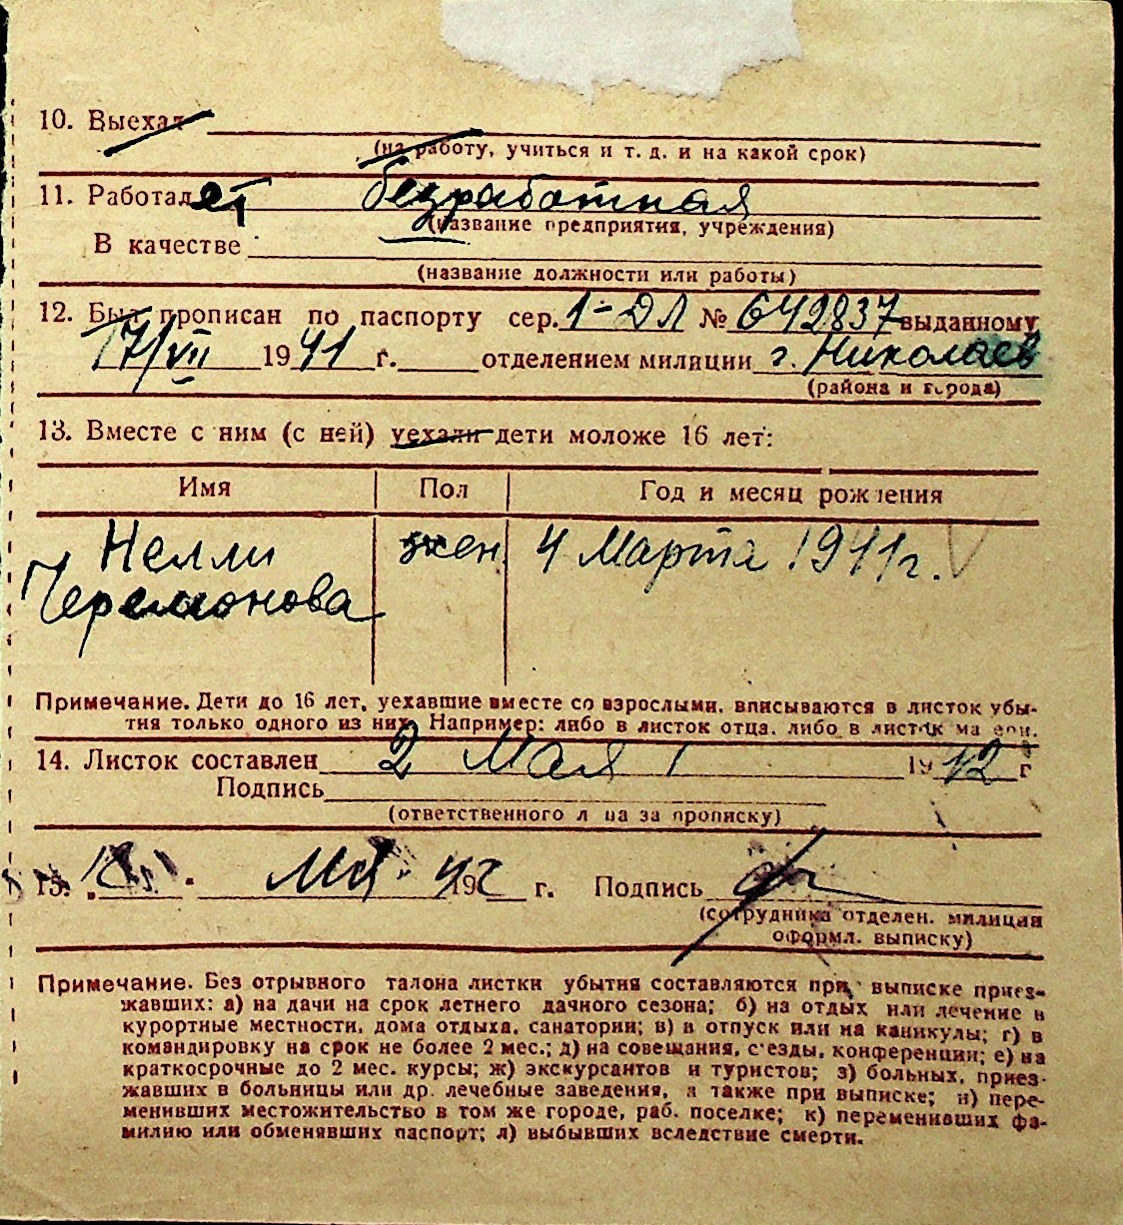 10. Выехал
(на работу, учиться и т. д. и на какой срок)
11. Работает безработная
(название предприятия, учреждения)
В качестве
(название должности или работы)
12. Был прописан по паспорту сер. 1-ДЛ № 642837 выданному
17/VII 1941 г. отделением милиции г. Николаев
(района и города)
13. Вместе с ним (с ней) уехали дети моложе 16 лет:
Имя Пол Год и месяц рождения
Нелли жен. 4 Марта 1941 г.
Примечание. Дети до 16 лет, уехавшие вместе со взрослыми, вписываются в листок убы-
тия только одного из них. Например: либо в листок отца, либо в листок матери.
14. Листок составлен 2 Мая 1942 г
Подпись
(ответственного лица за прописку)
15. 1942 г. Подпись
(сотрудника отделен. милиции
оформл. выписку)
Примечание. Без отрывного талона листки убытия составляются при выписке приез-
жавших: а) на дачи на срок летнего дачного сезона; б) на отдых или лечение в
курортные местности, дома отдыха, санатории; в) в отпуск или на каникулы; г) в
командировку на срок не более 2 мес.; д) на совещания, с'езды, конференции; е) на
краткосрочные до 2 мес. курсы; ж) экскурсантов и туристов; з) больных, приез-
жавших в больницы или др. лечебные заведения, а также при выписке; и) пере-
менивших местожительство в том же городе, раб. поселке; к) переменивших фа-
милию или обменявших паспорт; л) выбывших вследствие смерти.